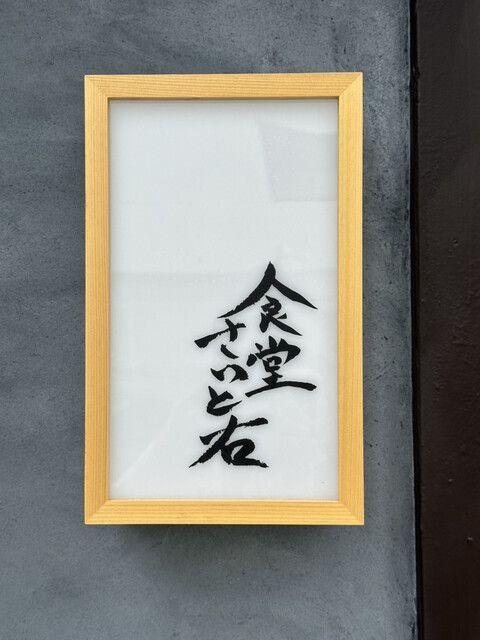 食堂
さいと右